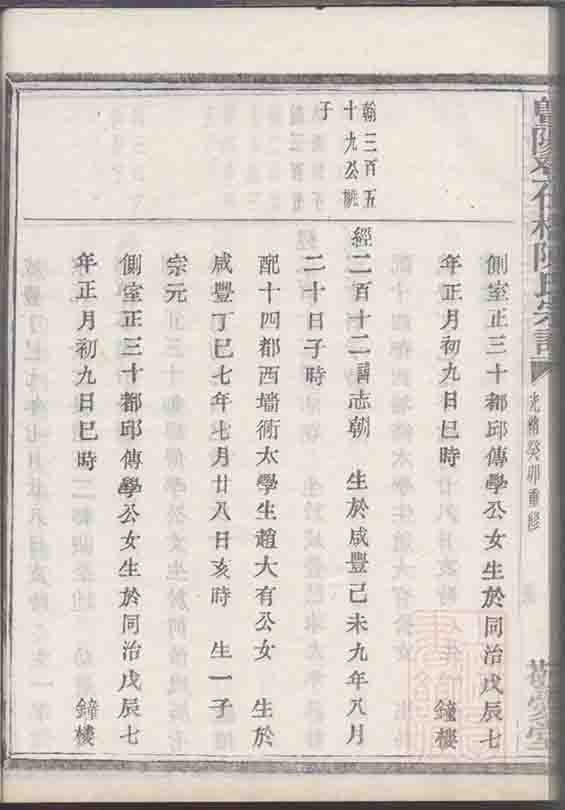 陳氏宗譜
光緒癸卯重修
堂
側室正三十都邱傳學公女生於同治戊辰七
年正月初九日巳時 鐘樓
翰三百五
十九公祧
子
經二百十二諱志朝 生於咸豐己未九年八月
二十日子時
配十四都西墻術太學生趙大有公女 生於
咸豐丁巳七年七月廿八日亥時 生一子
宗元
側室正三十都邱傳學公女生於同治戊辰七
年正月初九日巳時 鐘樓